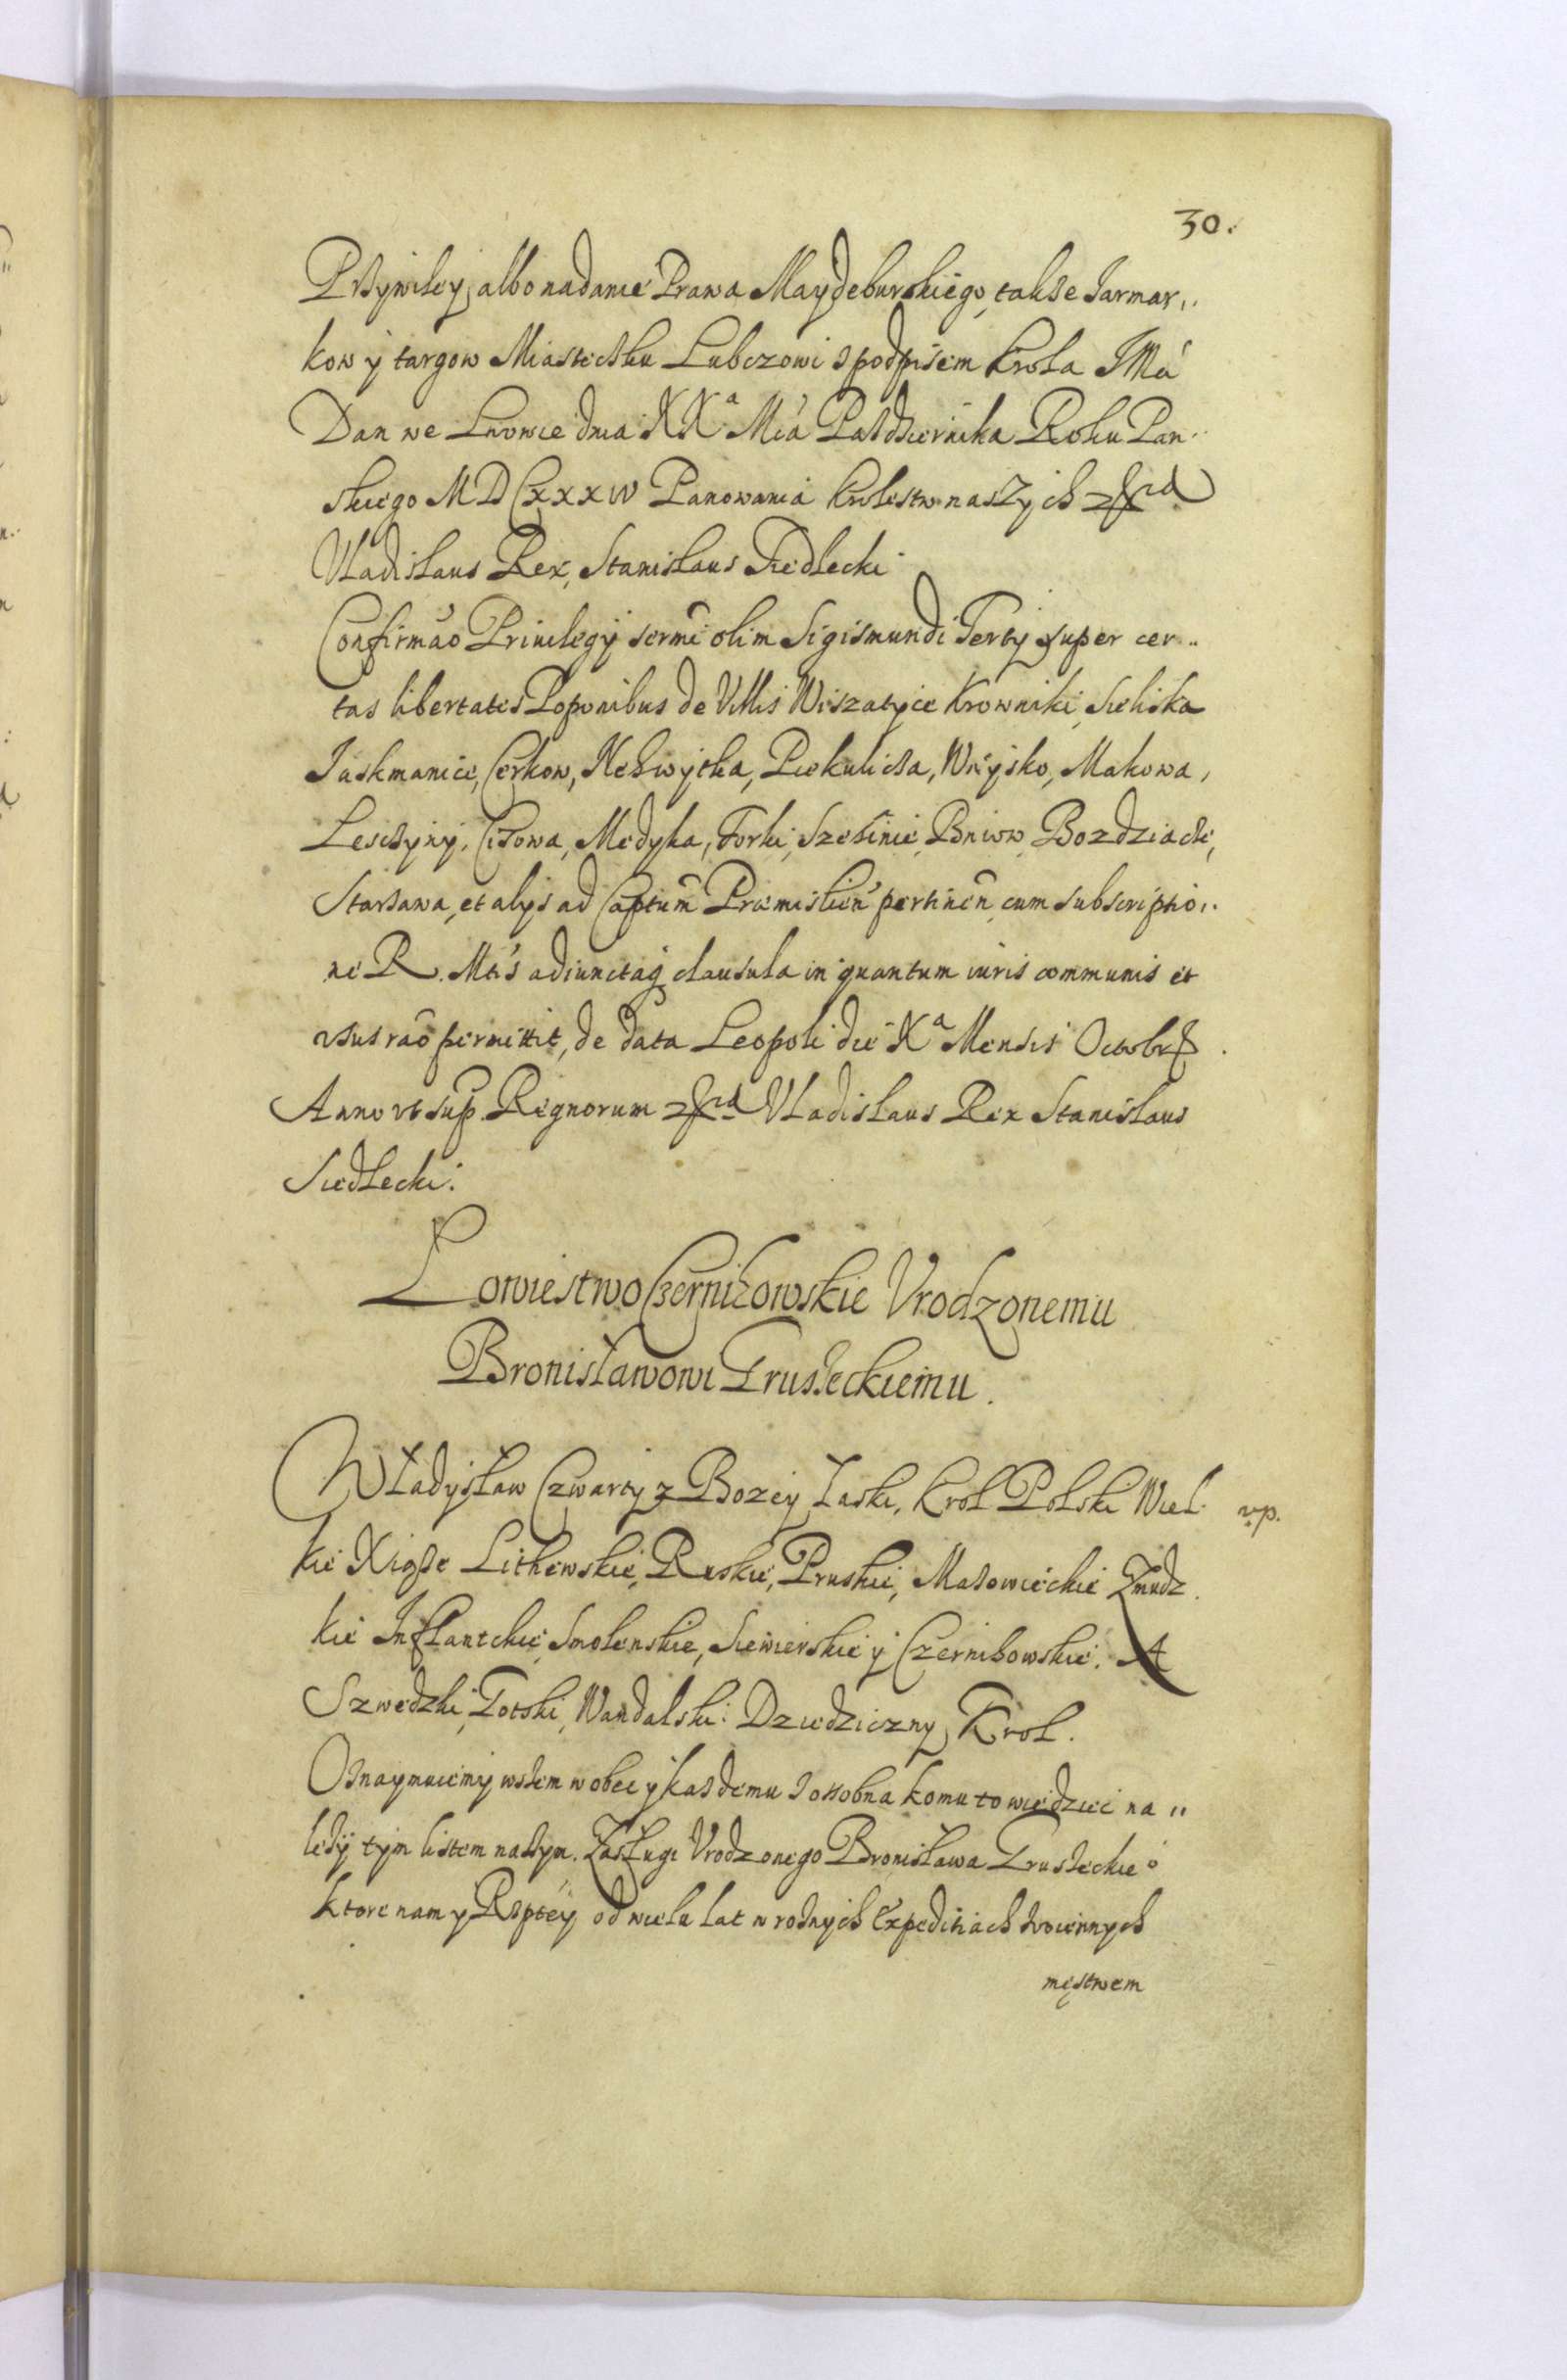 30.
Przywiley albo nadanie Prawa Maydeburskiego, także Jarmar„
kow y targow Miasteczku Lubczowi z podpisem Krola JMci
Dan we Lwowie dnia XXª Mca Pazdziernika Roku Pan„
skiego MDCXXXIV Panowania Krolestw naszych &c
Vladislaus Rex, Stanislaus Siedlecki
Confirmao Priuilegij sermi olim Sigismundi Tertij super cer„
tas libertates Poponibus de Villis Wiszatyce Krowniki, Sieliska
Jaskmanice, Cerkow, Nehwytka, Piekulicza, Woysko, Makowa,
Lesczyny, Cisowa, Medyka, Torki, Szesinie, Pniow, Bozdziacze,
Starzawa, et alys ad Captum Præmislien pertinen, cum subscriptio„
ne R. Mtis adiunctaq clausula in quantum iuris communis et
vsus rao permittit, de data Leopoli die Xª Mensis Octobris
Anno vt sup. Regnorum &c Vladislaus Rex Stanislaus
Siedlecki.
Łowiestwo Czernihowskie Vrodzonemu
Bronisławowi Gruszeckiemu.
Władysław Czwarty z Bozey Łaski, Krol Polski Wiel
vp.
kie Xiąże Lithewskie, Ruskie, Pruskie, Mazowieckie Zmudz
kie Inflantckie, Smolenskie, Siewierskie y Czernihowskie. A
Szwedzki, Gotski, Wandalski Dziedziczny Krol.
Oznaymuiemy wszem wobec y kazdemu z ossobna komu to wiedziec na„
lezy tym listem naszym. Zasługi Vrodzonego Bronisława Gruszeckieº
ktore nam y Rzptey od wielu lat w roznych Expeditiach woiennych
męstwem